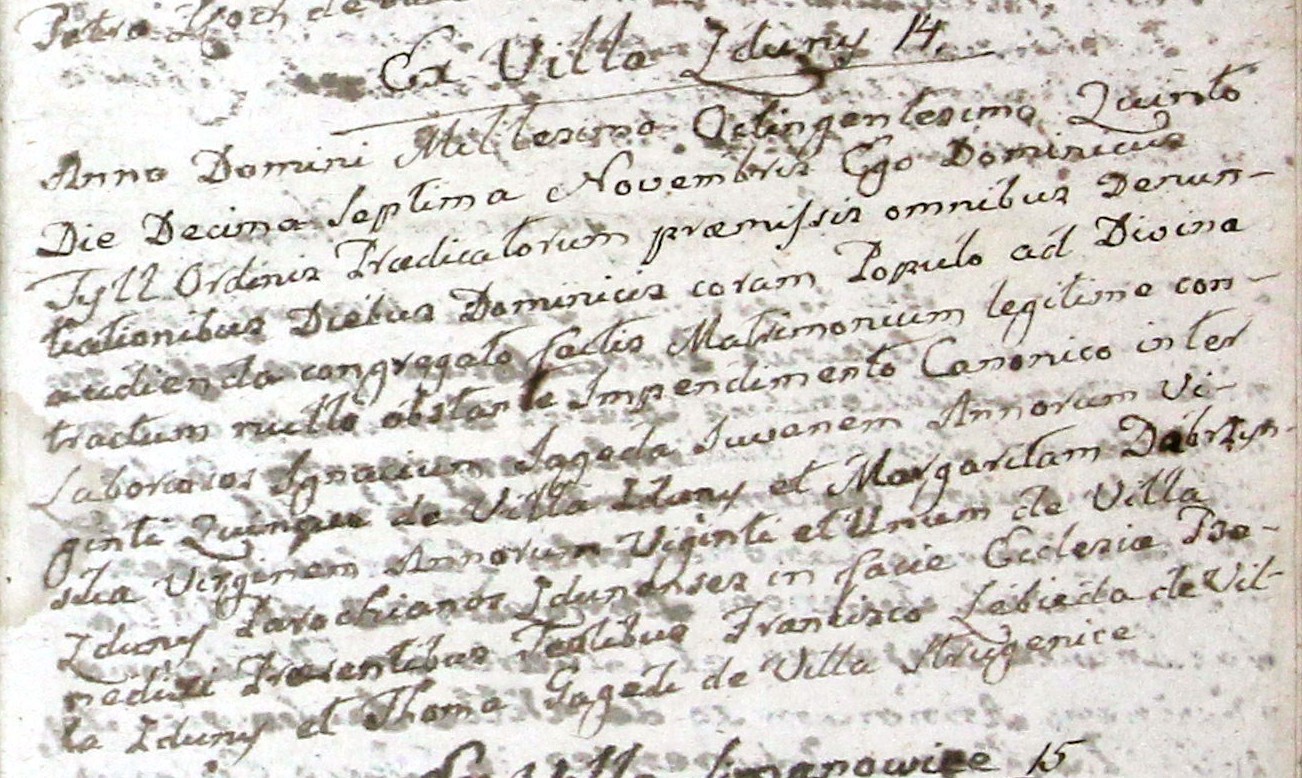 Petro
Ex Villa Zduny 14.
Anno Domini Millesimo Octingentesimo Quinto
Die Decima Septima Novembris Ego Dominicus
Tyll Ordinis Prædicatorum præmissis omnibus Denun-
tiationibus Diebus Dominicis coram Populo ad Divina
audienda congregato factis Matrimonium legitime con-
tractum nullo obstante Impendimento Canonico inter
Laboriosos Ignacium Jageda Juvenem Annorum Vi-
ginti Quinque de Villa Zduny et Margaritam Dabrzyn-
ska Virginem Annorum Viginti et Unum de Villa
Zduny Parochianos Zdunenses in facie Ecclesiæ Be-
nedixi Præsentibus Testibus Francisco Łabieda de Vil-
la Zduny et Thoma Gagedi de Villa Strugenice
15